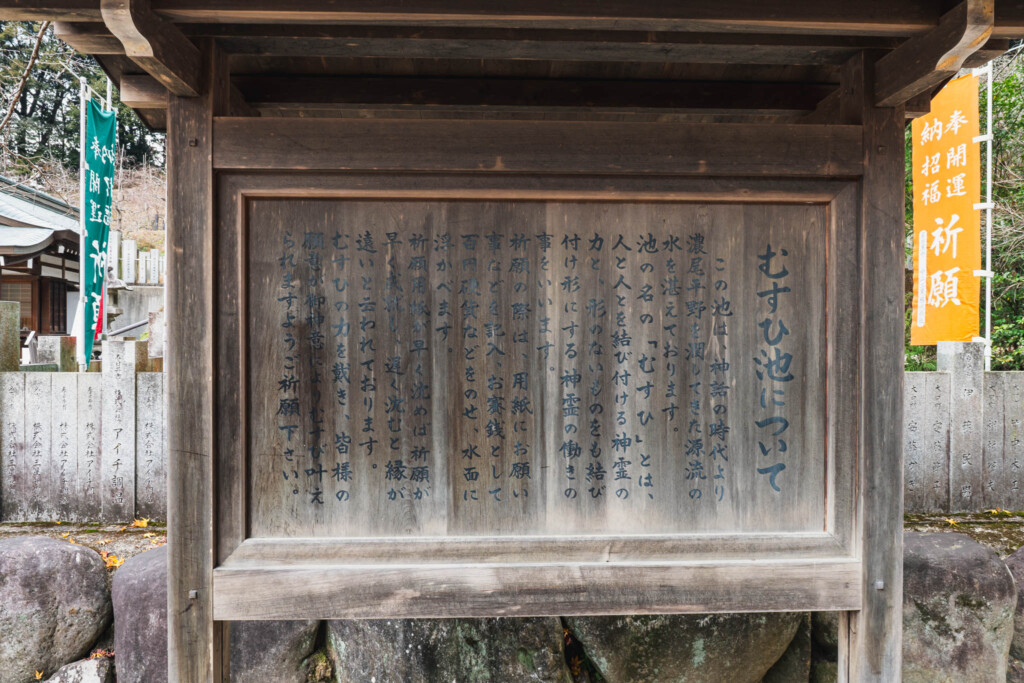 むすひ池について
この池は、神話の時代より
濃尾平野を潤してきた源流の
水を湛えております。
池の名の「むすひ」とは、
人と人とを結び付ける神霊の
力と、形のないものをも結び
付け形にする神霊の働きの
事をいいます。
祈願の際は、用紙にお願い
事などを記入、お賽銭として
百円硬貨などをのせ、水面に
浮かべます。
祈願用紙が早く沈めば祈願が
早く成就し、遅く沈むと縁が
遠いと云われております。
むすひの力を戴き、皆様の
願意が御神意によりむすび叶え
られますようご祈願下さい。
奉納
開運
招福
祈願
奉
開運
祈願
株式会社アイチ